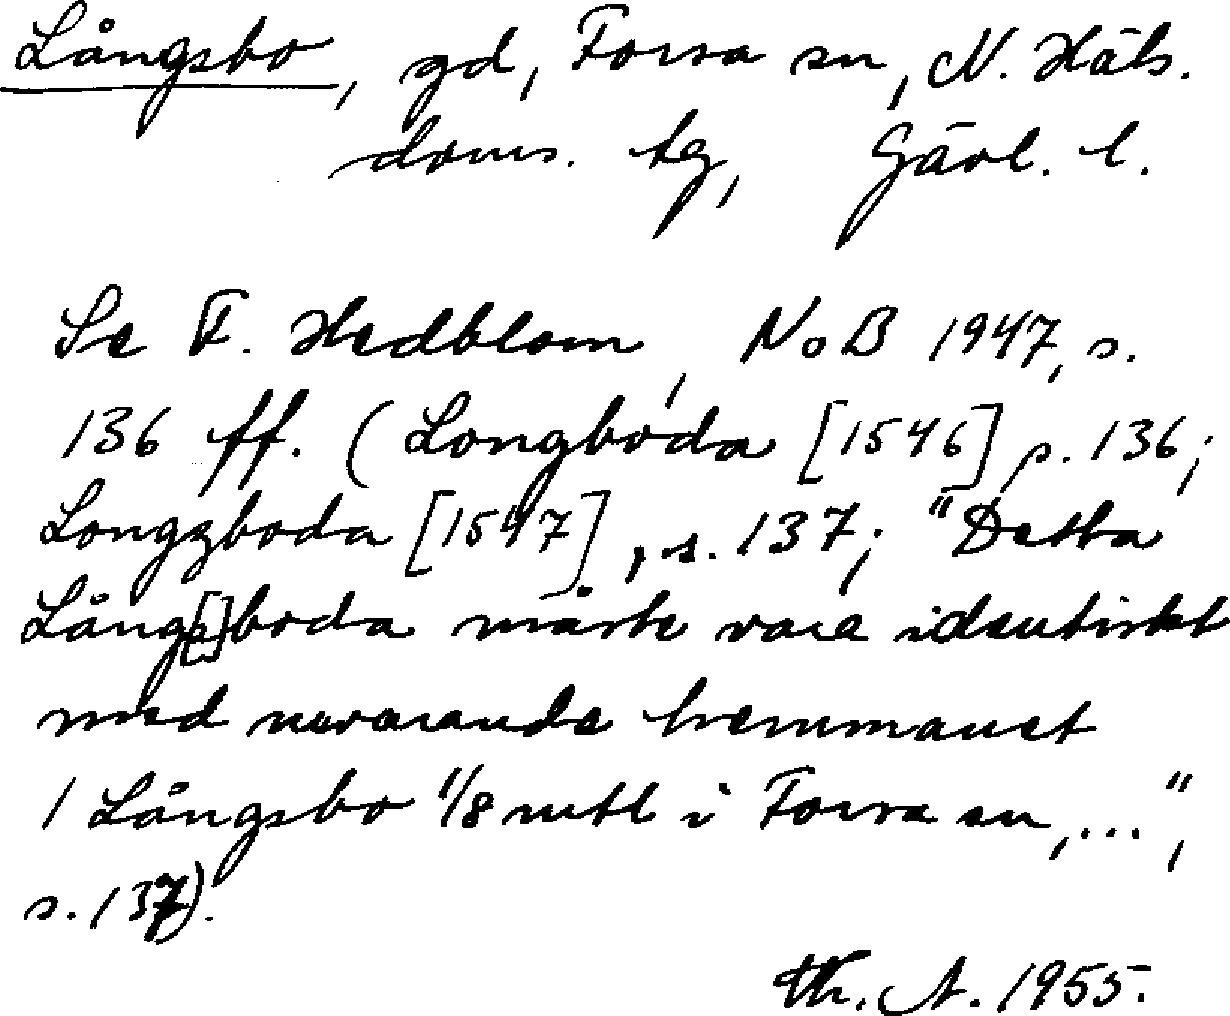 Långsbo, gd, Forsa sn, N. Häls.
doms. tg, Gävl. l.
Se F. Hedblom, NoB 1947, s.
136 ff. (Longboda [1546] s. 136;
Longzboda [1547], s. 137; "Detta
Lång[s]boda måste vara identiskt
med nuvarande hemmanet
1 Långsbo 11/8 mtl i Forsa sn, ...",
s. 137).
Th. A. 1955.